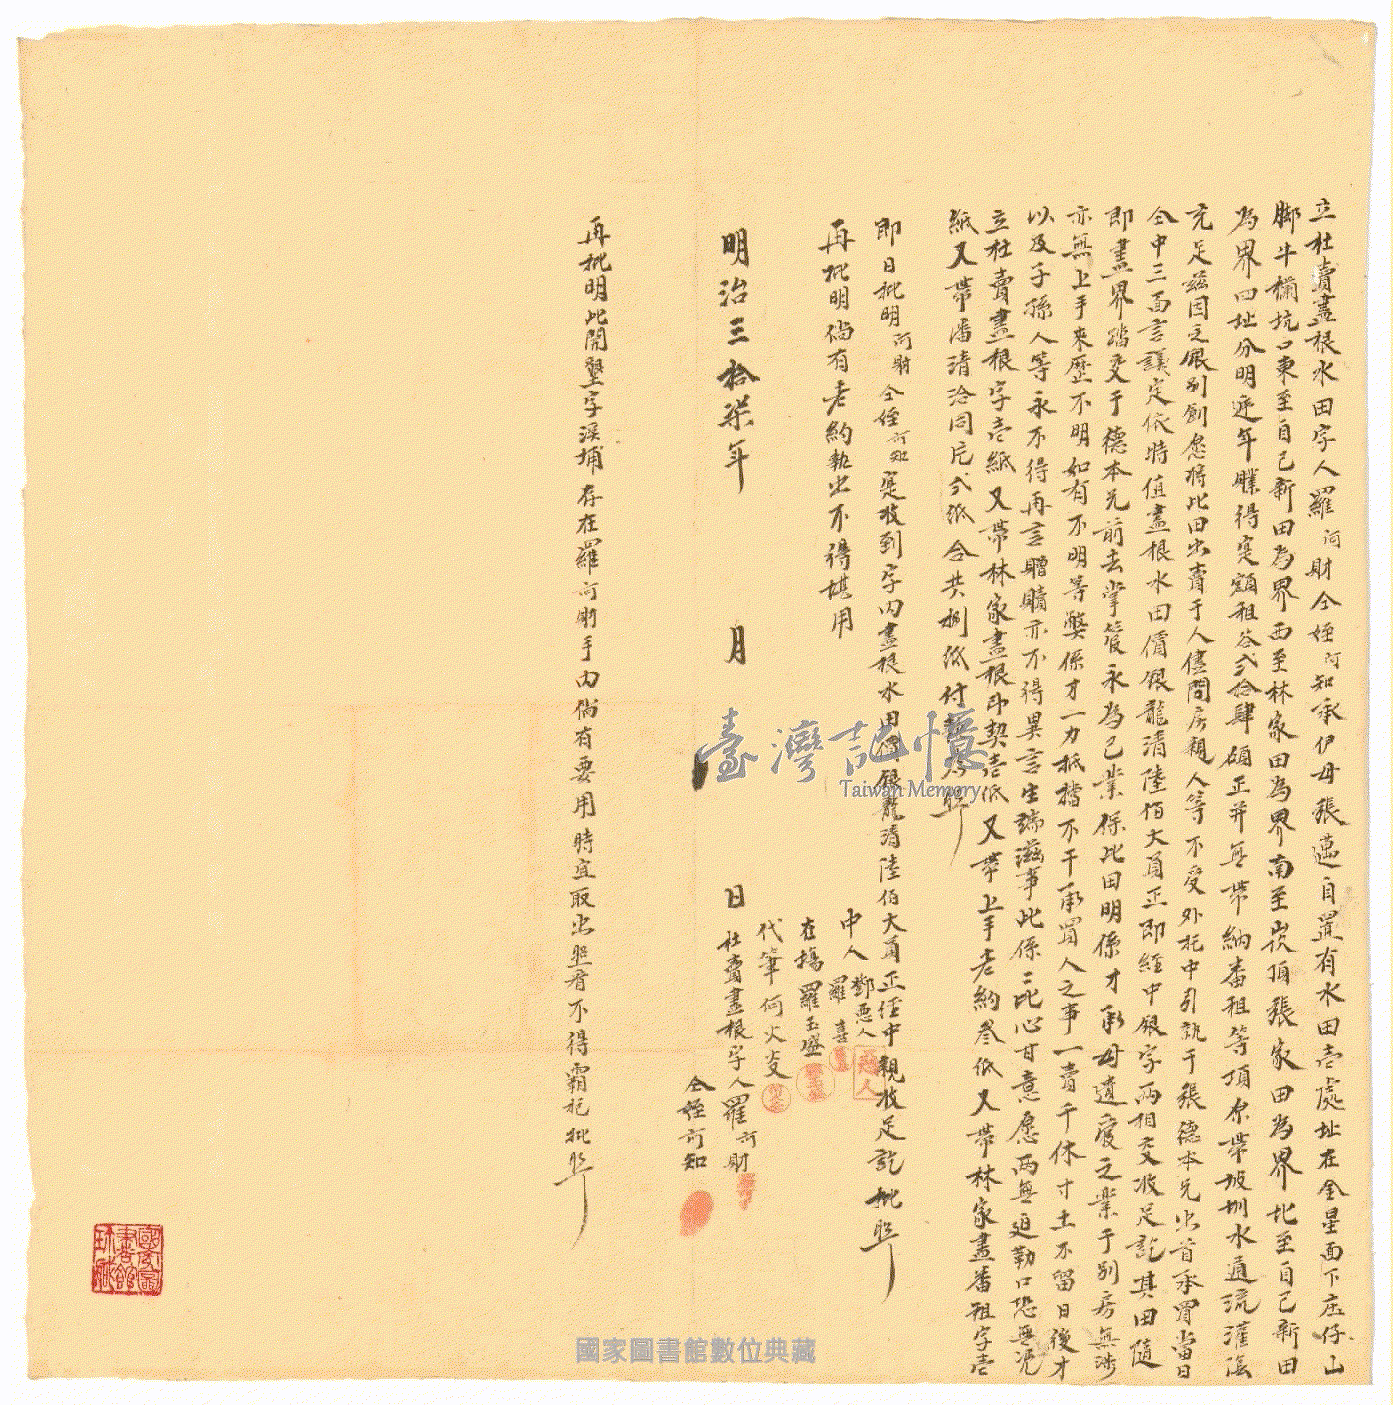 立杜賣盡根水田字人羅阿財仝姪阿知承伊母張邁自置有水田壱處址在金星面下庄仔山
脚牛欄坑口東至自己新田為界西至林家田為界南至崁頂張家田為界北至自己新田
為界四址分明逓年贌得寔額租谷弍拾肆碩正并無帶納番租等項原帶坡圳水通流灌蔭
充足茲因乏銀別創愿將此田出賣于人儘問房親人等不受外托中引就于張德本兄出首承買當日
仝中三面言議定依時值盡根水田價銀龍清陸佰大員正即經中銀字両相交收足訖其田隨
即盡界踏交于德本兄前去掌管永為己業保此田明係才承母遺廢之業于別房無涉
亦無上手來歷不明如有不明等弊係才一力抵擋不干承買人之事一賣千休寸土不留日後才
以及子孫人等永不得再言贈贖亦不得異言生端滋事此係二比心甘意愿両無迫勒口恐無凭
立杜賣盡根字壱紙又帶林家盡根印契壱紙又帶上手老約叁紙又帶林家盡番租字壱
紙又帶潘清洽同尾弍紙合共捌紙付執為照
即日批明阿財仝姪阿知寔收到字內盡根水田價銀龍清陸佰大員正經中親收足訖批照
再批明倘有老約執出不得堪用
中人鄭惡人
羅喜
在塲羅玉盛
代筆何火炎
明治三拾柒年 月 日
杜賣盡根字人羅阿財
仝姪阿知
再批明此開墾字溪埔存在羅阿財手內倘有要用時宜取出照看不得霸抗批照
國家圖書館珍藏
臺灣記憶
Taiwan Memory
國家圖書館數位典藏